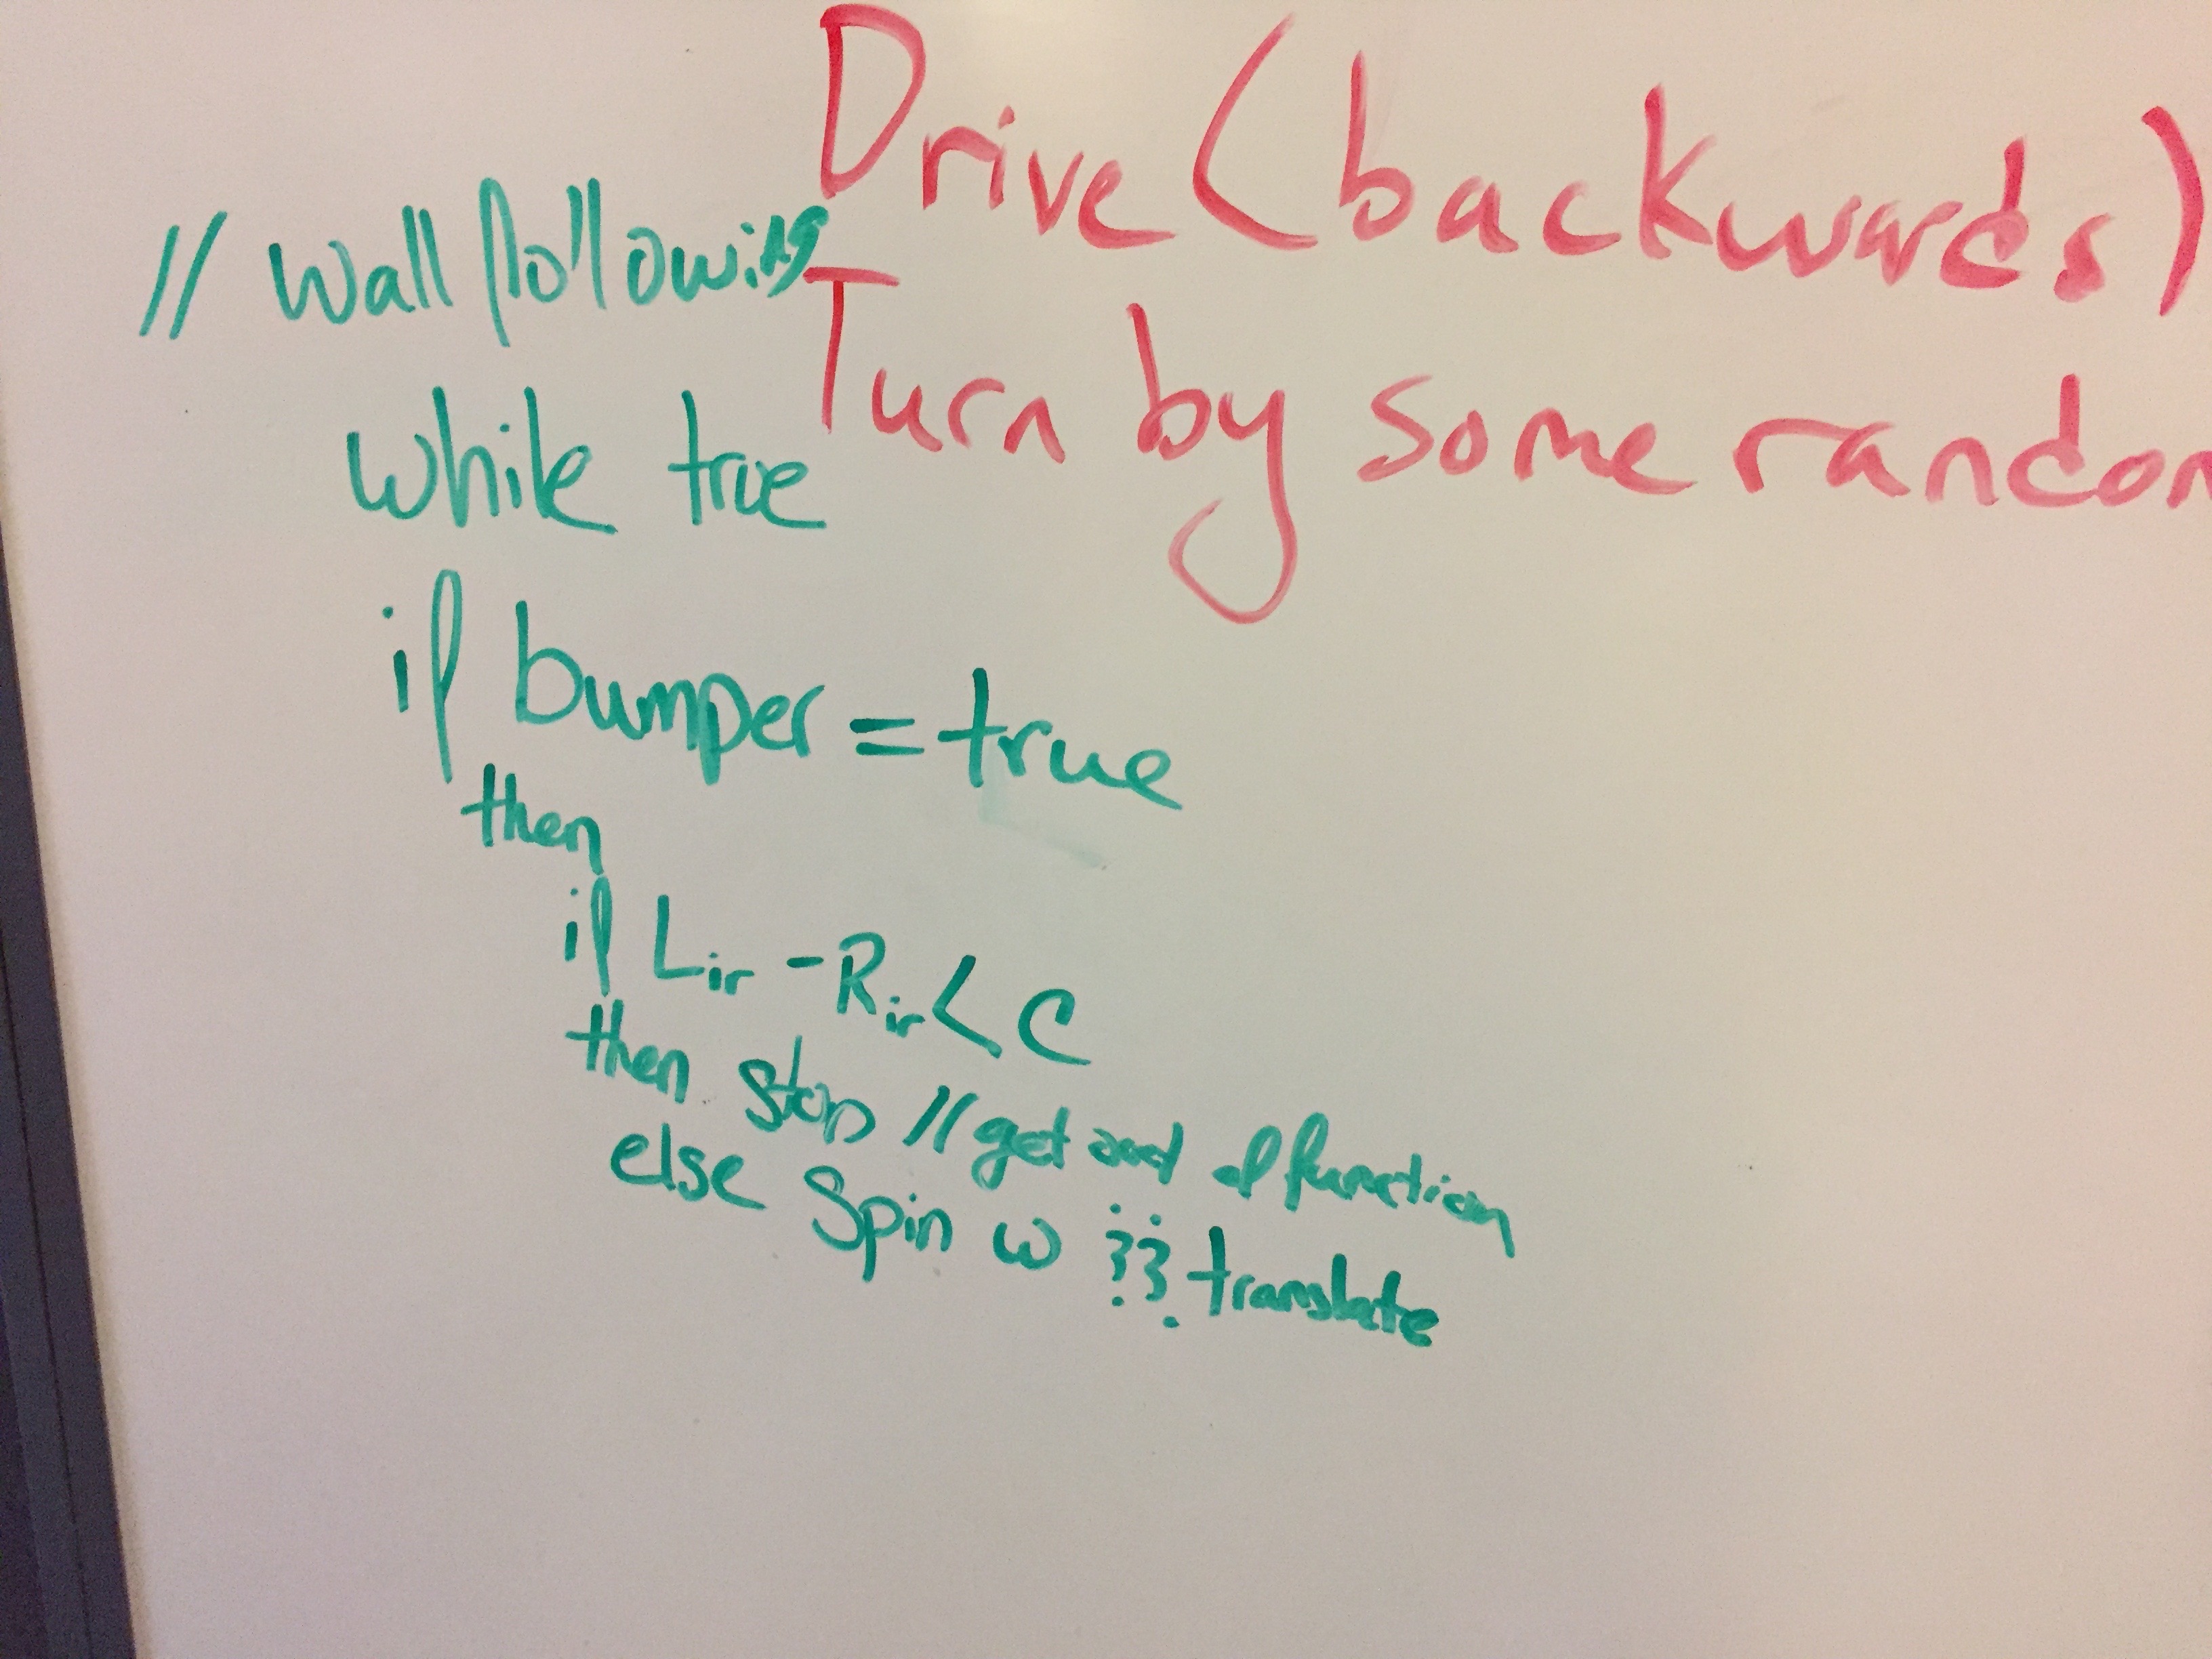 Drive(backwards)
Turn by some random
// Wall following
while true
if bumper = true
then
if Lir - Rir < C
then stop // get out of function
else Spin w ?? translate